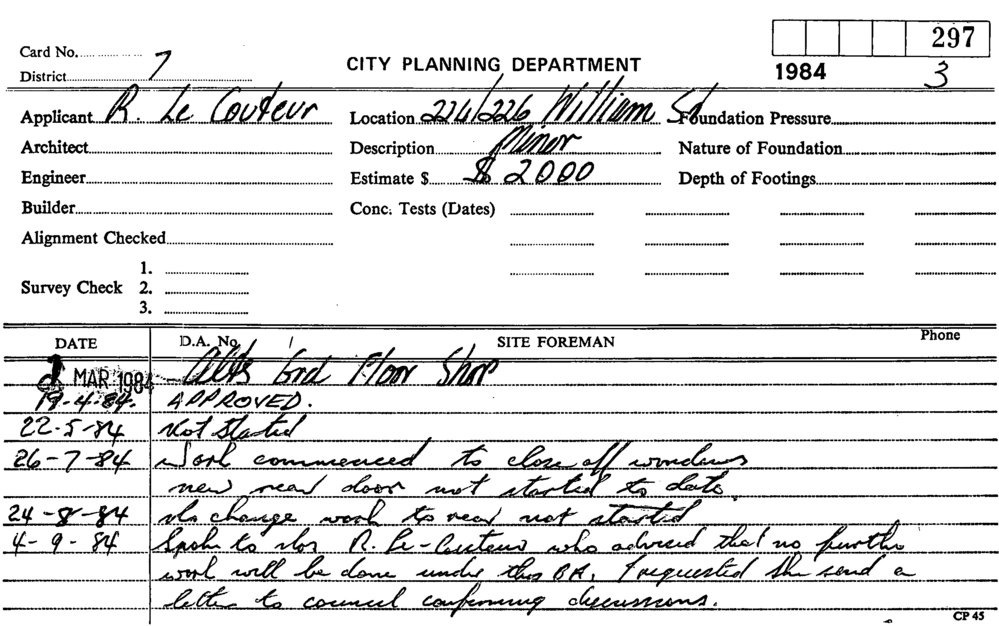 297
Card No.
District 7
CITY PLANNING DEPARTMENT
1984 3
Applicant R. Le Couteur Location 224/226 William St Foundation Pressure
Architect Description Minor Nature of Foundation
Engineer Estimate $ $ 2000 Depth of Footings
Builder Conc. Tests (Dates)
Alignment Checked
1.
Survey Check 2.
3.
DATE D.A. No. SITE FOREMAN Phone
MAR 1984 Alts Grd Floor Shop
19-4-84. APPROVED.
22-5-84 Not Started
26-7-84 Work commenced to close off windows
new rear door not started to date.
24-8-84 No change work to rear not started
4-9-84 Spoke to R. Le-Couteur who advised that no further
work will be done under this BA, I requested she send a
letter to council confirming discussions.
CP 45